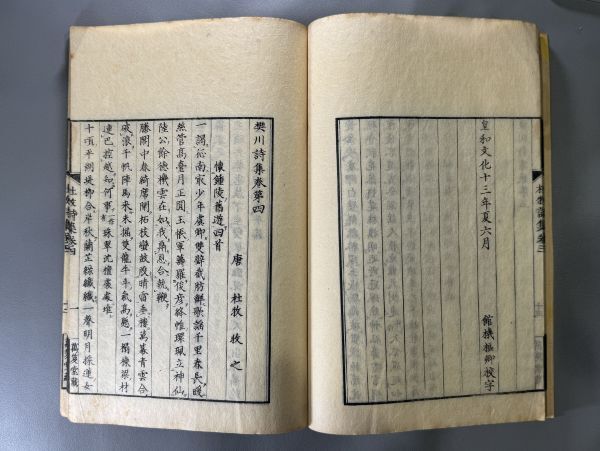 杜牧詩集卷三
皇和文化十三年夏六月
館機樞卿校字
樊川詩集卷第四
唐 杜牧 牧之
懷鍾陵舊遊四首
一謁征南最少年虞卿雙璧截肪鮮歌謠千里春長暖
絲管高臺月正圓玉帳軍籌羅俊彥絳帷環珮立神仙
陸公餘德機雲在如我酬恩合執鞭
滕閣中春綺席開柘枝蠻鼓殷晴雷垂樓萬幕青雲合
破浪千帆陣馬來未掘雙龍牛斗氣高懸一榻棟梁材
連巴控越知何事珠翠沈檀處處堆
十頃平湖堤柳合岸秋蘭芷綠纖纖一聲明月採蓮女
杜牧詩集卷四
一
萬笈堂藏